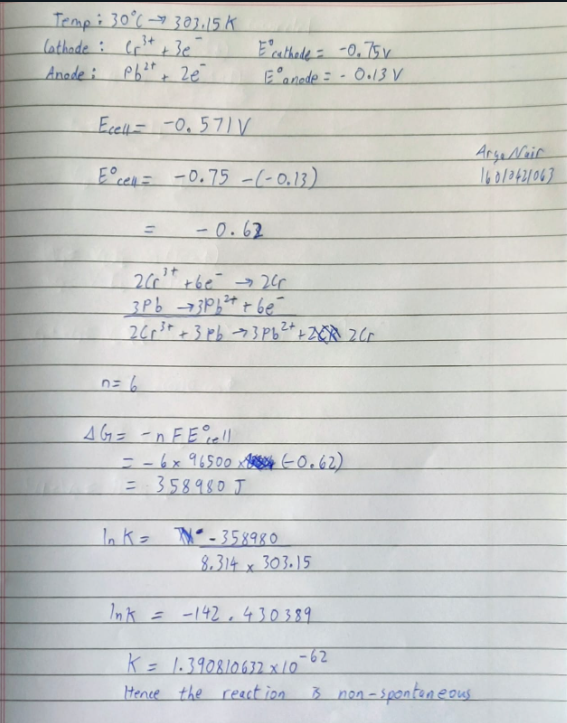 Temp: 30°C → 303.15K
Cathode: Cr³⁺ + 3e⁻ E°cathode = -0.75v
Anode: Pb²⁺ + 2e⁻ E°anode = -0.13 V
Ecell = -0.571V
E°cell = -0.75 -(-0.13)
Arya Nair
16010421063
= -0.62
2Cr³⁺ + 6e⁻ → 2Cr
3Pb → 3Pb²⁺ + 6e⁻
2Cr³⁺ + 3Pb → 3Pb²⁺ + 2Cr
n = 6
ΔG = -nFE°cell
= -6 x 96500 x (-0.62)
= 358980 J
ln K = -358980
8.314 x 303.15
lnk = -142.430389
K = 1.390810632 x 10⁻⁶²
Hence the reaction is non-spontaneous